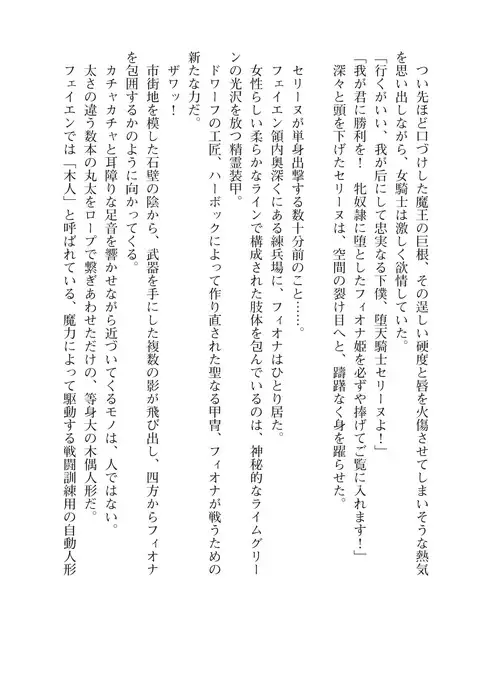 つい先ほど口づけした魔王の巨根、その逞しい硬度と唇を火傷させてしまいそうな熱気
を思い出しながら、女騎士は激しく欲情していた。
「行くがいい、我が后にして忠実なる下僕、堕天騎士セリーヌよ！」
「我が君に勝利を！　牝奴隷に堕としたフィオナ姫を必ずや捧げてご覧に入れます！」
深々と頭を下げたセリーヌは、空間の裂け目へと、躊躇なく身を躍らせた。
セリーヌが単身出撃する数十分前のこと……。
フェイエン領内奥深くにある練兵場に、フィオナはひとり居た。
女性らしい柔らかなラインで構成された肢体を包んでいるのは、神秘的なライムグリー
ンの光沢を放つ精霊装甲。
ドワーフの工匠、ハーボックによって作り直された聖なる甲冑、フィオナが戦うための
新たな力だ。
ザワッ！
市街地を模した石壁の陰から、武器を手にした複数の影が飛び出し、四方からフィオナ
を包囲するかのように向かってくる。
カチャカチャと耳障りな足音を響かせながら近づいてくるモノは、人ではない。
太さの違う数本の丸太をロープで繋ぎあわせただけの、等身大の木偶人形だ。
フェイエンでは「木人」と呼ばれている、魔力によって駆動する戦闘訓練用の自動人形